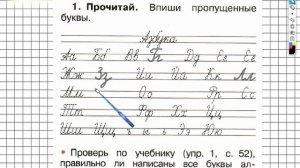 1. Прочитай. Впиши пропущенные
буквы.
Азбука
Аа Бб Вв Гг Дд Ее Ёё
Жж Зз Ии Йй Кк Лл
Мм Оо Пп Сс
Тт Фф Хх Цц
Шш Щщ ъ ы ь Ээ Юю
• Проверь по учебнику (упр. 1, с. 52),
правильно ли написаны все буквы ал-